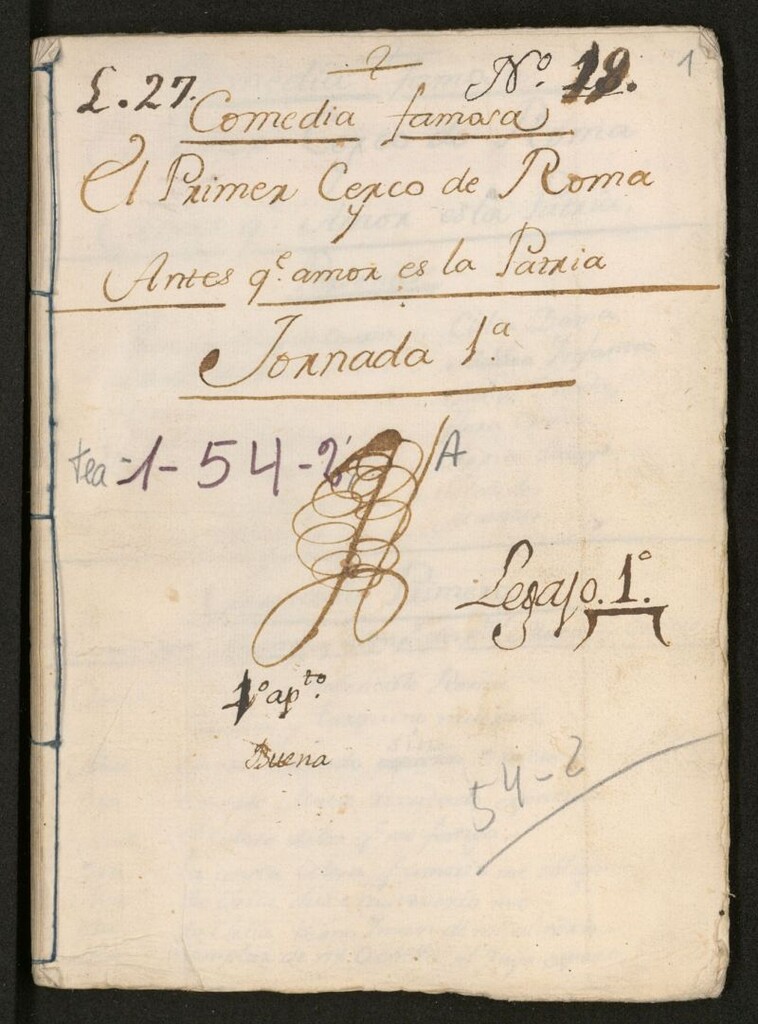 L. 27. Nº 19. 1
Comedia famosa
El Primer Cerco de Roma
y
Antes q.e amor es la Patria
Jornada 1.a
tea-1-54-2, A
Legajo. 1.º
1.º ap.to
Buena
54-2